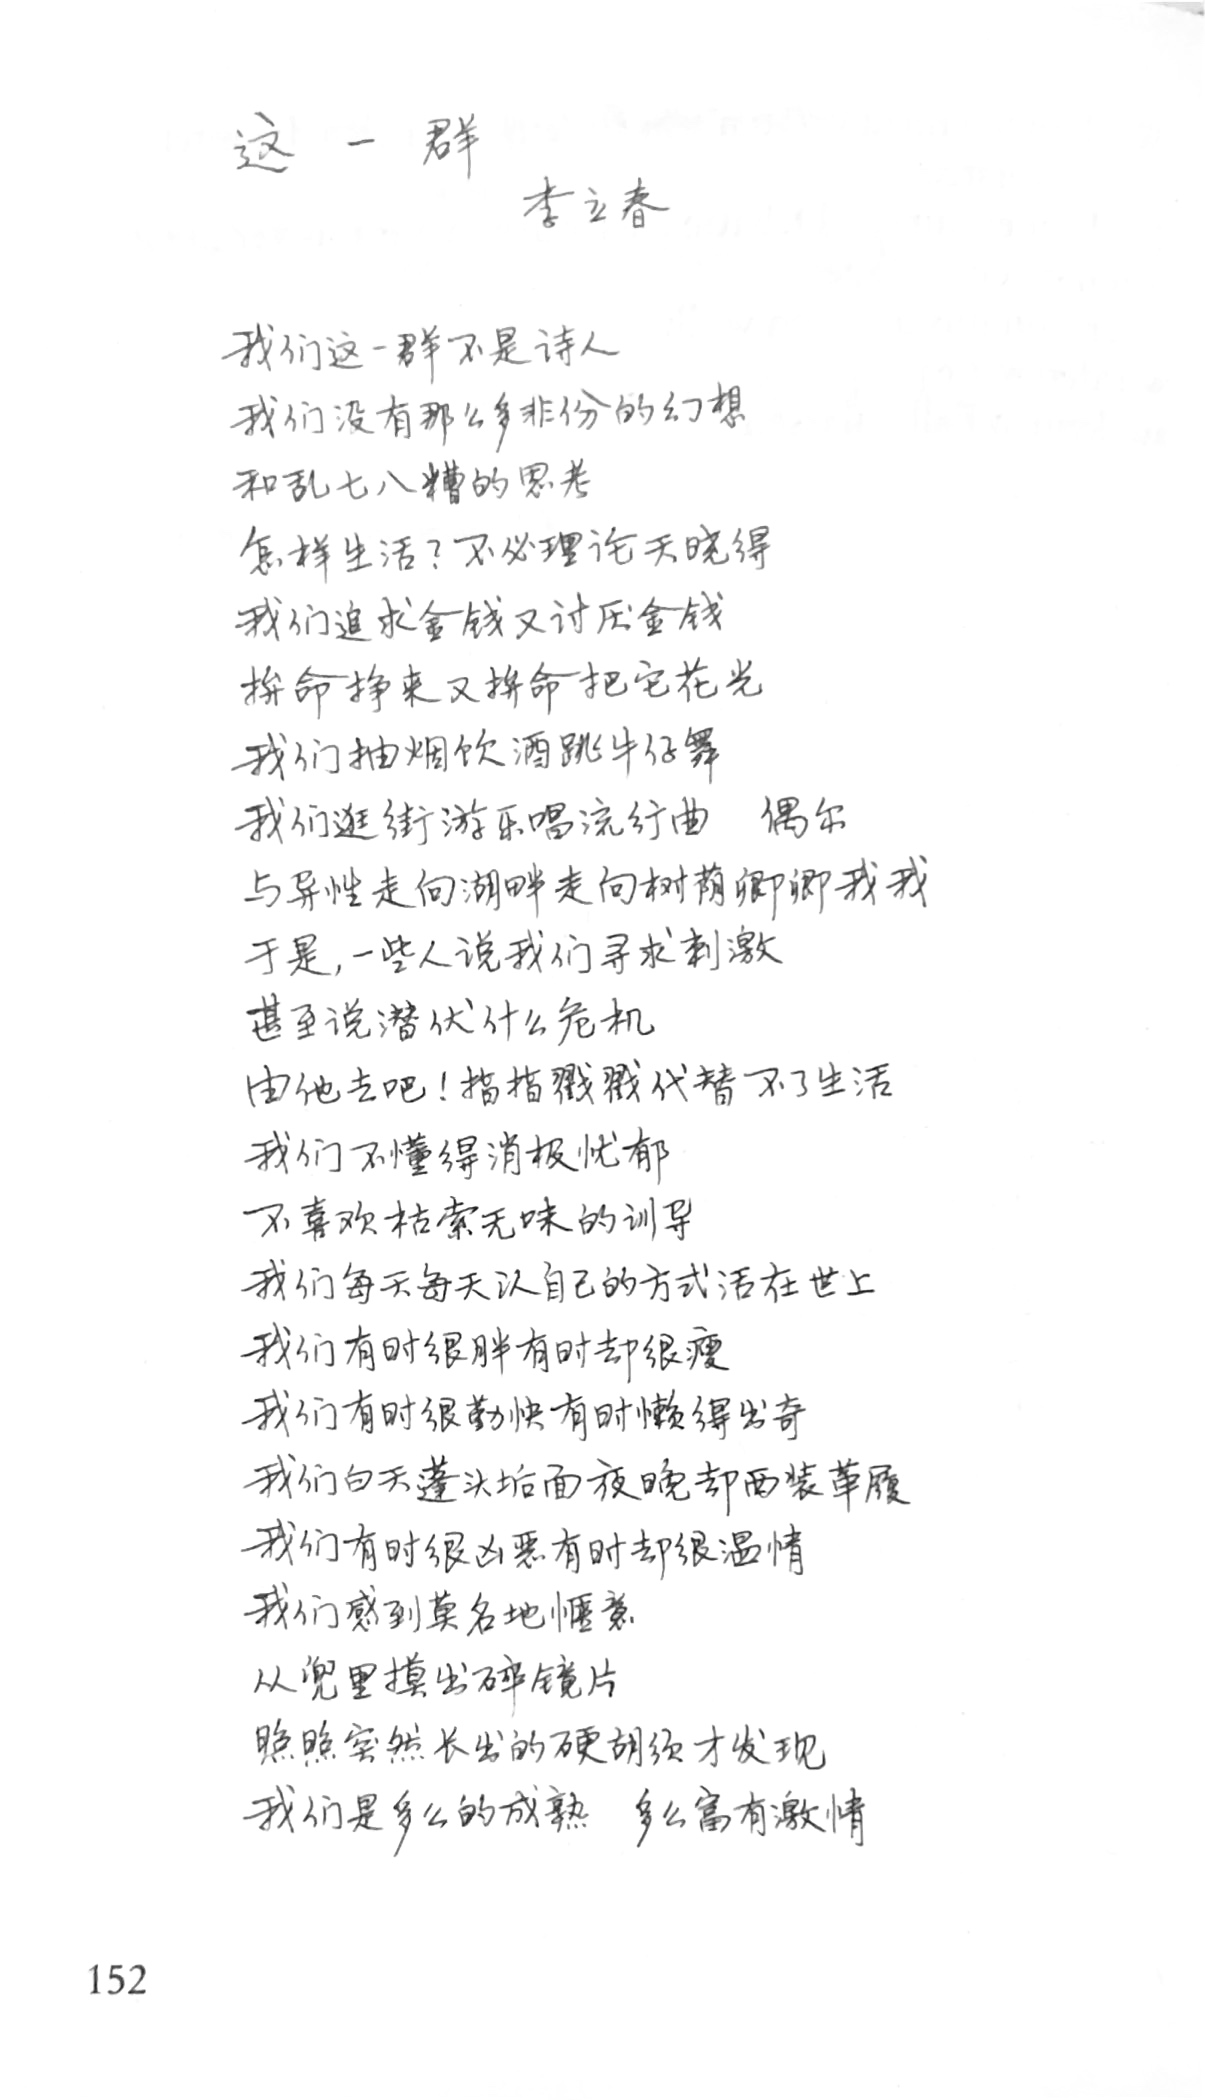 这一群
李立春
我们这一群不是诗人
我们没有那么多非份的幻想
和乱七八糟的思考
怎样生活？不必理论天晓得
我们追求金钱又讨厌金钱
拚命挣来又拚命把它花光
我们抽烟饮酒跳牛仔舞
我们逛街游乐唱流行曲　偶尔
与异性走向湖畔走向树荫卿卿我我
于是，一些人说我们寻求刺激
甚至说潜伏什么危机
由他去吧！指指戳戳代替不了生活
我们不懂得消极忧郁
不喜欢枯索无味的训导
我们每天每天以自己的方式活在世上
我们有时很胖有时却很瘦
我们有时很勤快有时懒得出奇
我们白天蓬头垢面夜晚却西装革履
我们有时很凶恶有时却很温情
我们感到莫名地惬意
从兜里摸出碎镜片
照照突然长出的硬胡须才发现
我们是多么的成熟　多么富有激情
152